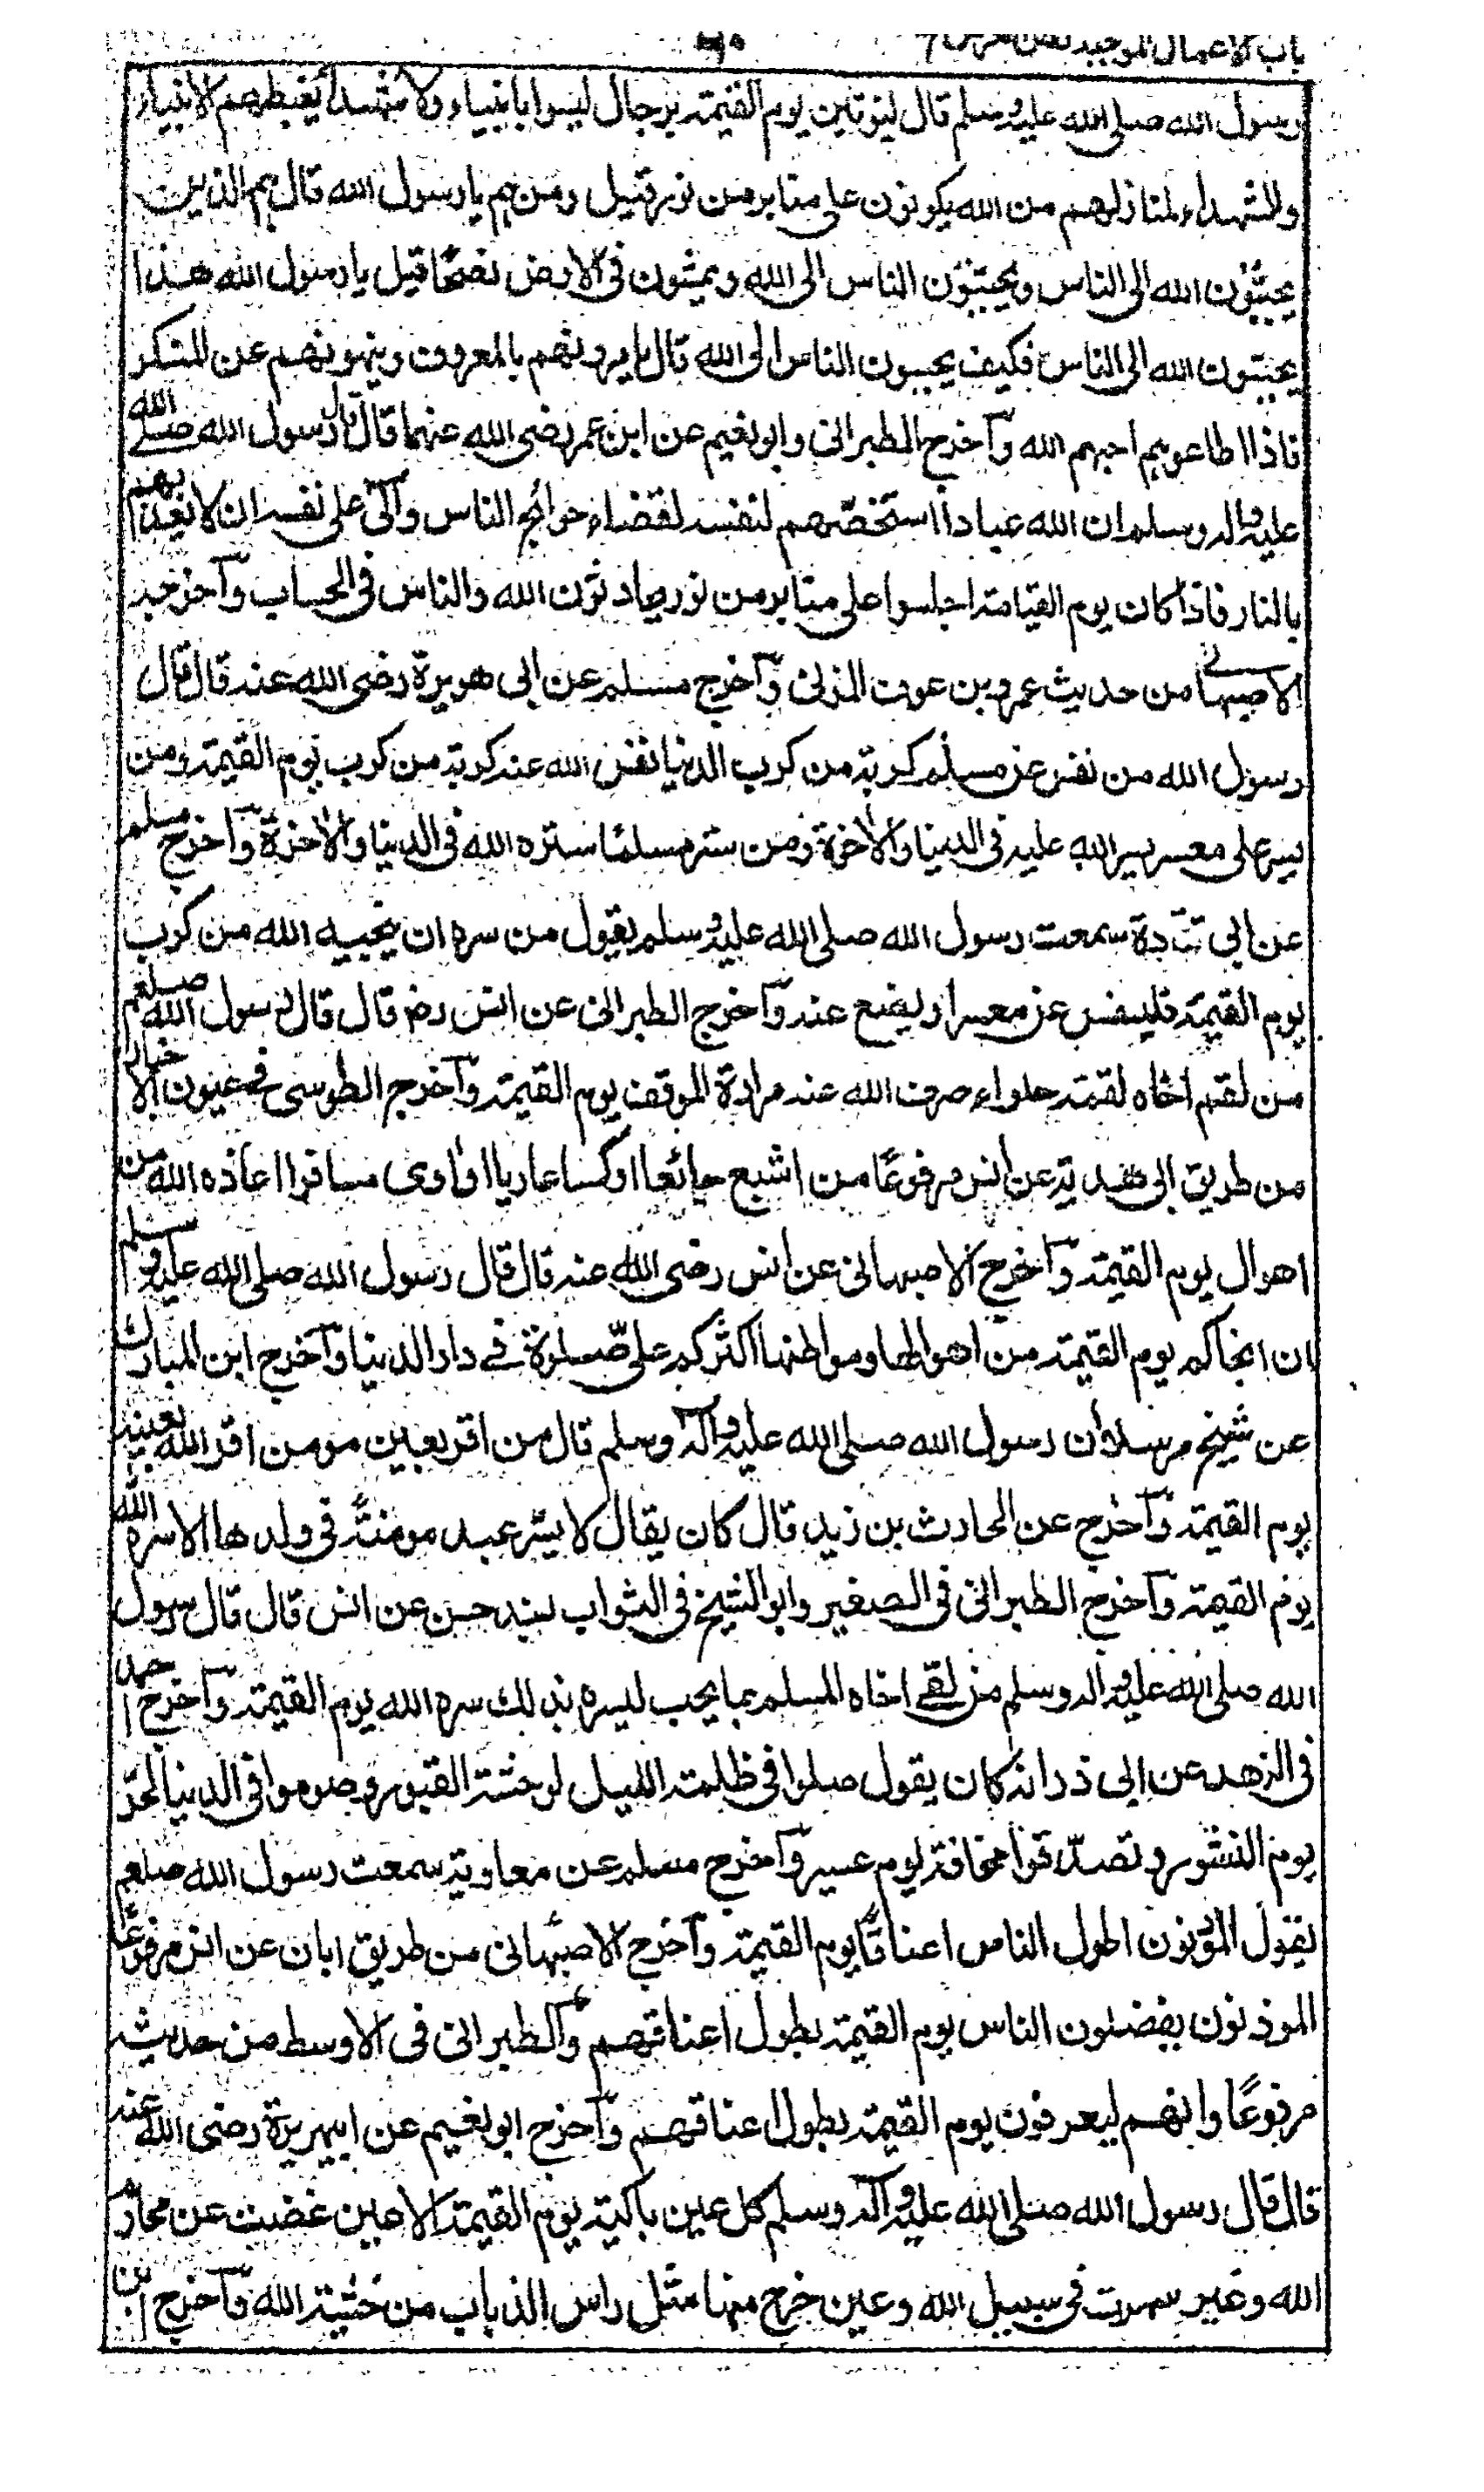 باب الاعمال الموجبة
رسول الله صلى الله عليه وسلم قال ليوتين يوم القيمة برجال ليسوا بانبياء ولا شهداء يغبطهم الانبياء
والشهداء لمنازلهم من الله يكونون على منابر من نور قيل ومن هم يا رسول الله قال هم الذين
يحببون الله الى الناس ويحببون الناس الى الله ويمشون فى الارض نصحا قيل يا رسول الله هذا
يحببون الله الى الناس فكيف يحببون الناس الى الله قال يامرونهم بالمعروف وينهونهم عن المنكر
فاذا اطاعوهم احبهم الله وآخرج الطبرانى وابو نعيم عن ابن عمر رضى الله عنهما قال قال رسول الله صلى الله
عليه وآله وسلم ان الله عبادا استخصهم لنفسه لقضاء حوائج الناس وآلى على نفسه ان لا يعذبهم
بالنار فاذا كان يوم القيامة اجلسوا على منابر من نور يحادثون الله والناس فى الحساب وآخرجه
الاصبهانے من حديث عمرو بن عوف المزنى وآخرج مسلم عن ابى هريرة رضى الله عنه قال قال
رسول الله من نفس عن مسلم كربة من كرب الدنيا نفس الله عنه كربة من كرب يوم القيمة ومن
يسر على معسر يسر الله عليه فى الدنيا والآخرة ومن ستر مسلما ستره الله فى الدنيا والآخرة وآخرج مسلم
عن ابى قتادة سمعت رسول الله صلى الله عليه وسلم يقول من سره ان ينجيه الله من كرب
يوم القيمة فلينفس عن معسر او ليضع عنه وآخرج الطبرانى عن انس رض قال قال رسول الله صلعم
من لقم اخاه لقمة حلواء صرف الله عنه مرارة الموقف يوم القيمة وآخرج الطوسى فے عيون الاخبار
من طريق ابى هدبة عن انس مرفوعًا من اشبع جائعا او كسا عاريا او اوى مسافرا اعاذه الله من
اهوال يوم القيمة وآخرج الاصبهانى عن انس رضى الله عنه قال قال رسول الله صلى الله عليه وسلم
ان انجاكم يوم القيمة من اهوالها ومواطنها اكثركم علىّ صلوة فے دار الدنيا وآخرج ابن المبارك
عن شيخ مرسلا ان رسول الله صلى الله عليه وآله وسلم قال من اقر بعين مومن اقر الله بعينه
يوم القيمة وآخرج عن الحارث بن زيد قال كان يقال لا يسر عبد مومنة فى ولدها الا سره الله
يوم القيمة وآخرج الطبرانى فى الصغير وابو الشيخ فى الثواب بسند حسن عن انس قال قال رسول
الله صلى الله عليه وآله وسلم من لقے اخاه المسلم بما يحب ليسره بذلك سره الله يوم القيمة وآخرج احمد
فى الزهد عن ابى ذر انه كان يقول صلوا فى ظلمة الليل لوحشة القبور وصوموا فى الدنيا لحرّ
يوم النشور وتصدّقوا مخافة ليوم عسير وآخرج مسلم عن معاوية سمعت رسول الله صلعم
يقول الموذنون اطول الناس اعناقًا يوم القيمة وآخرج الاصبهانى من طريق ابان عن انس مرفوعًا
الموذنون يفضلون الناس يوم القيمة بطول اعناقهم والطبرانى فى الاوسط من حديثه
مرفوعًا وانهم ليعرفون يوم القيمة بطول اعناقهم وآخرج ابو نعيم عن ابيهريرة رضى الله عنه
قال قال رسول الله صلى الله عليه وآله وسلم كل عين باكية يوم القيمة الا عين غضت عن محارم
الله وعين سهرت فى سبيل الله وعين خرج منها مثل راس الذباب من خشية الله وآخرج ابن